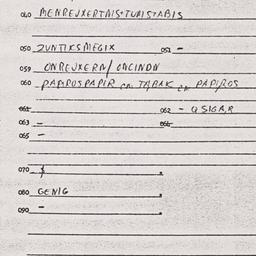 040 MENREJXERTNIS+TURISTABIS
050 ZUNTIKSMEGIX 051 -
059 ONREJXERN/ONCINDN
060 PAPIROSPAPIR en TABAK en PAPIROS
061 062 - QSIGAR
063 - 064
065 -
070 $
080 GENIG
090 -